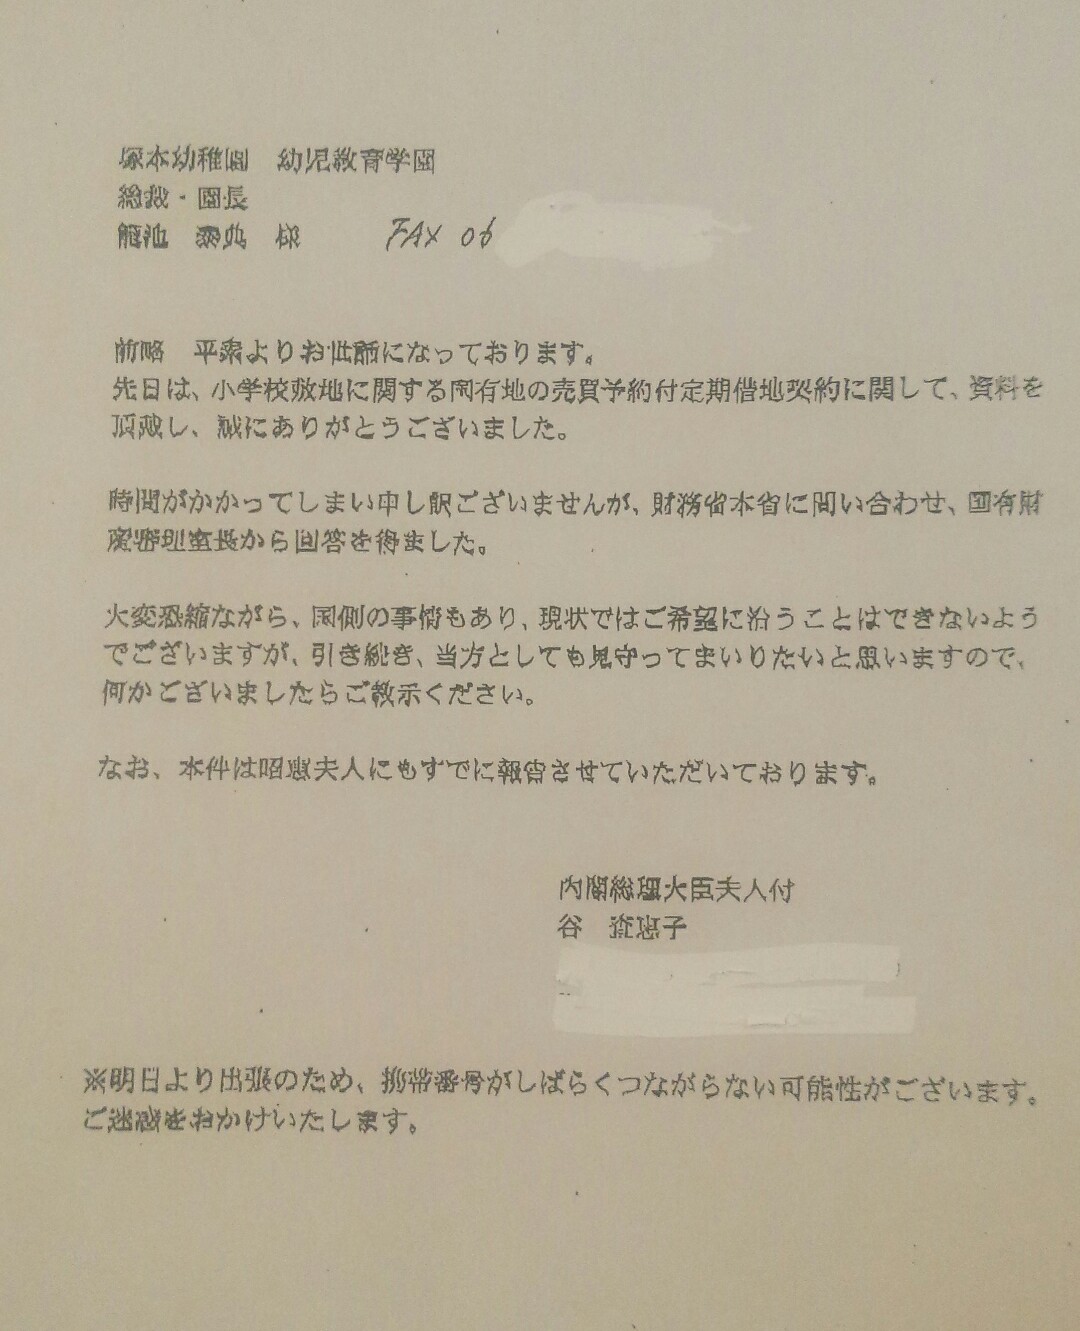 塚本幼稚園　幼児教育学園
総裁・園長
籠池　泰典　様　　FAX 06
前略　平素よりお世話になっております。
先日は、小学校敷地に関する国有地の売買予約付定期借地契約に関して、資料を
頂戴し、誠にありがとうございました。
時間がかかってしまい申し訳ございませんが、財務省本省に問い合わせ、国有財
産審理室長から回答を得ました。
大変恐縮ながら、国側の事情もあり、現状ではご希望に沿うことはできないよう
でございますが、引き続き、当方としても見守ってまいりたいと思いますので、
何かございましたらご教示ください。
なお、本件は昭恵夫人にもすでに報告させていただいております。
内閣総理大臣夫人付
谷　査恵子
※明日より出張のため、携帯番号がしばらくつながらない可能性がございます。
ご迷惑をおかけいたします。